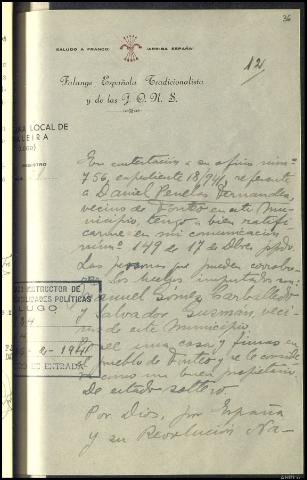 36
SALUDO A FRANCO ¡ARRIBA ESPAÑA!
12
Falange Española Tradicionalista
y de las J. O. N. S.
LOCAL DE
LEIRA
(LUGO)
REGISTRO
En contestación a su oficio núm.
756, expediente 18/941, referente
a Daniel Penelas Fernandez,
vecino de en este Mu-
nicipio, tengo a bien ratifi-
carme en mi comunicación
núm. 149 de 17 de Dbre. ppdo.
Las personas que pueden corrobo-
rar los hechos imputados son:
Manuel Gomez Carballedo
y Salvador Guzmán, veci-
nos de este Municipio.
Posee una casa y fincas en
el pueblo de y se le considera
como un buen propietario
De estado soltero
Por Dios, por España
y su Revolución Na-
INSTRUCTOR DE
RESPONSABILIDADES POLÍTICAS
LUGO
24
2-1941
DE ENTRADA